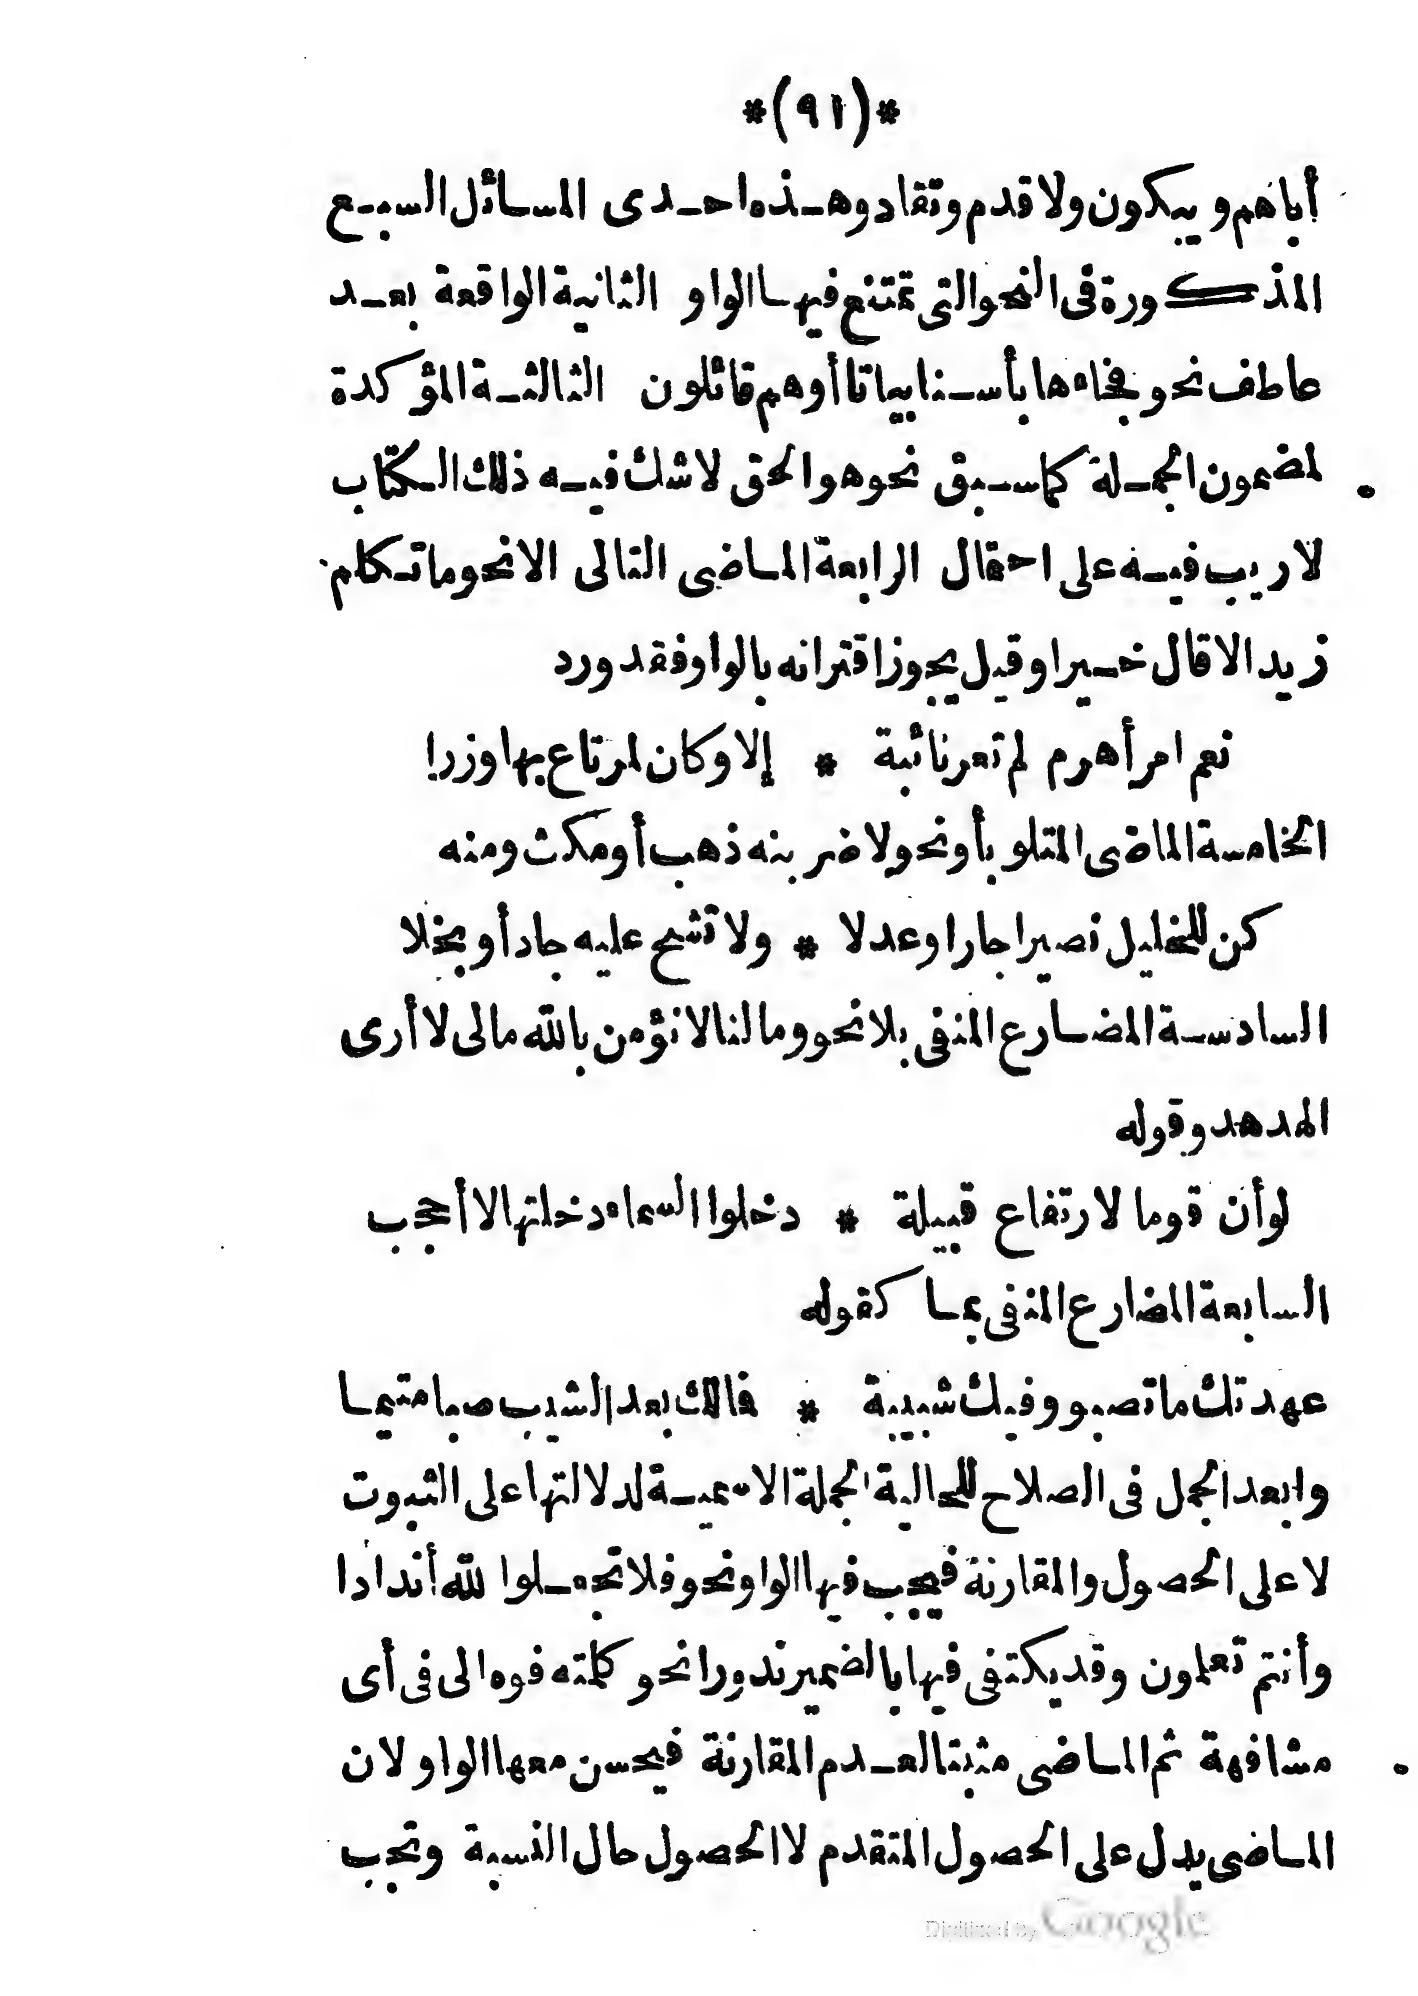 *(٩١)*
أباهم ويبكون ولا قدم وتقاد وهذه احدى المسائل السبع
المذكورة فى النحو التى تمتنع فيها الواو الثانية الواقعة بعد
عاطف نحو فجاءها بأسنا بياتا أوهم قائلون الثالثة المؤكدة
لمضمون الجملة كما سبق نحو هو الحق لا شك فيه ذلك الكتاب
لا ريب فيه على احتمال الرابعة الماضى التالى الا نحو ما تكلم
زيد الا قال خيرا وقيل يجوز اقترانه بالواو فقد ورد
نعم امرأ هرم لم تعر نائبة * إلا وكان لمرتاع بها وزرا
الخامسة الماضى المتلو بأو نحو لاضربنه ذهب أو مكث ومنه
كن للخليل نصيرا جار او عدلا * ولا تشح عليه جاد أو بخلا
السادسة المضارع المنفى بلا نحو ومالنا لا نؤمن بالله مالى لا أرى
الهدهد وقوله
لو أن قوما لارتفاع قبيلة * دخلوا السماء دخلتها لا أحجب
السابعة المضارع المنفى بما كقوله
عهدتك ما تصبو وفيك شبيبة * فمالك بعد الشيب صبا متيما
وابعد الجمل فى الصلاح للحالية الجملة الاسمية لدلالتها على الثبوت
لا على الحصول والمقارنة فيجب فيها الواو نحو فلا تجعلوا لله أندادا
وأنتم تعلمون وقد يكتفى فيها بالضمير ندورا نحو كلمته فوه الى فى أى
مشافهة ثم الماضى مثبتا لعدم المقارنة فيحسن معها الواو لان
الماضى يدل على الحصول المتقدم لا الحصول حال النسبة وتجب
Digitized by Google